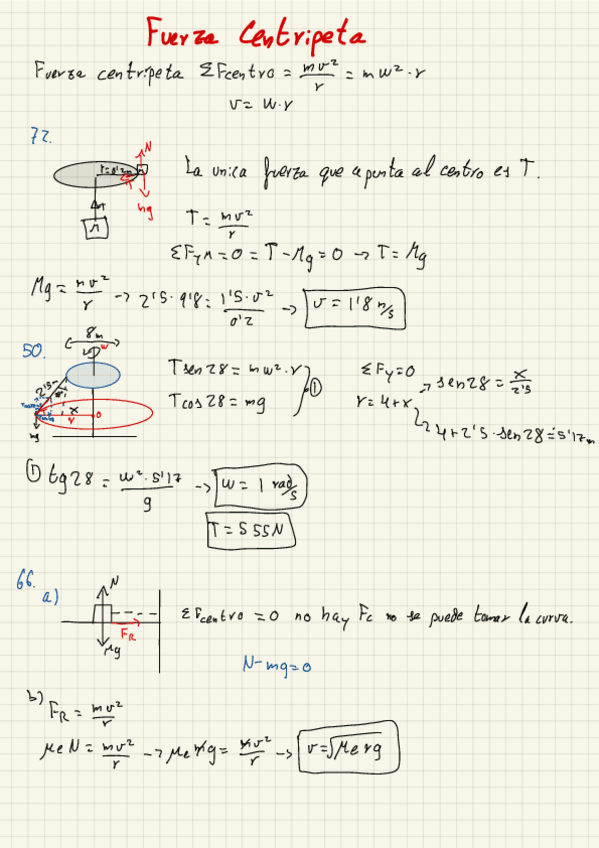 Fuerza Centripeta
Fuerza centripeta ΣFcentro = mv²/r = mw²·r
v = w·r
72.
r=0'2m N
mg
T
M
La unica fuerza que apunta al centro es T.
T = mv²/r
ΣFyM = 0 = T - Mg = 0 → T = Mg
Mg = mv²/r → 2'5·9'8 = 1'5·v²/0'2 → v = 1'8 m/s
50.
8m
w
2'5m
x
r
0
mg
Tsen28 = mw²·r
Tcos28 = mg
①
ΣFy=0
r = 4+x
sen28 = x/2'5
4+2'5·sen28=5'17m
① tg28 = w²·5'17/g → w = 1 rad/s
T = 555N
66.
a)
N
FR
Mg
ΣFcentro = 0 no hay Fc no se puede tomar la curva.
N-mg=0
b)
FR = mv²/r
μeN = mv²/r → μe mg = mv²/r → v=√μe rg